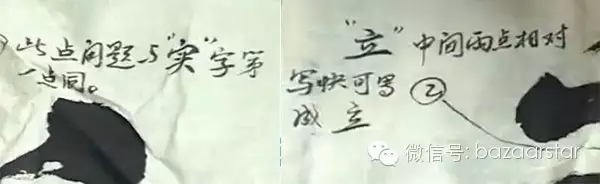 此点问题与“实”字第
一点同。
“立”中间两点相对
写快可写②
成立
微信号: bazaarstar